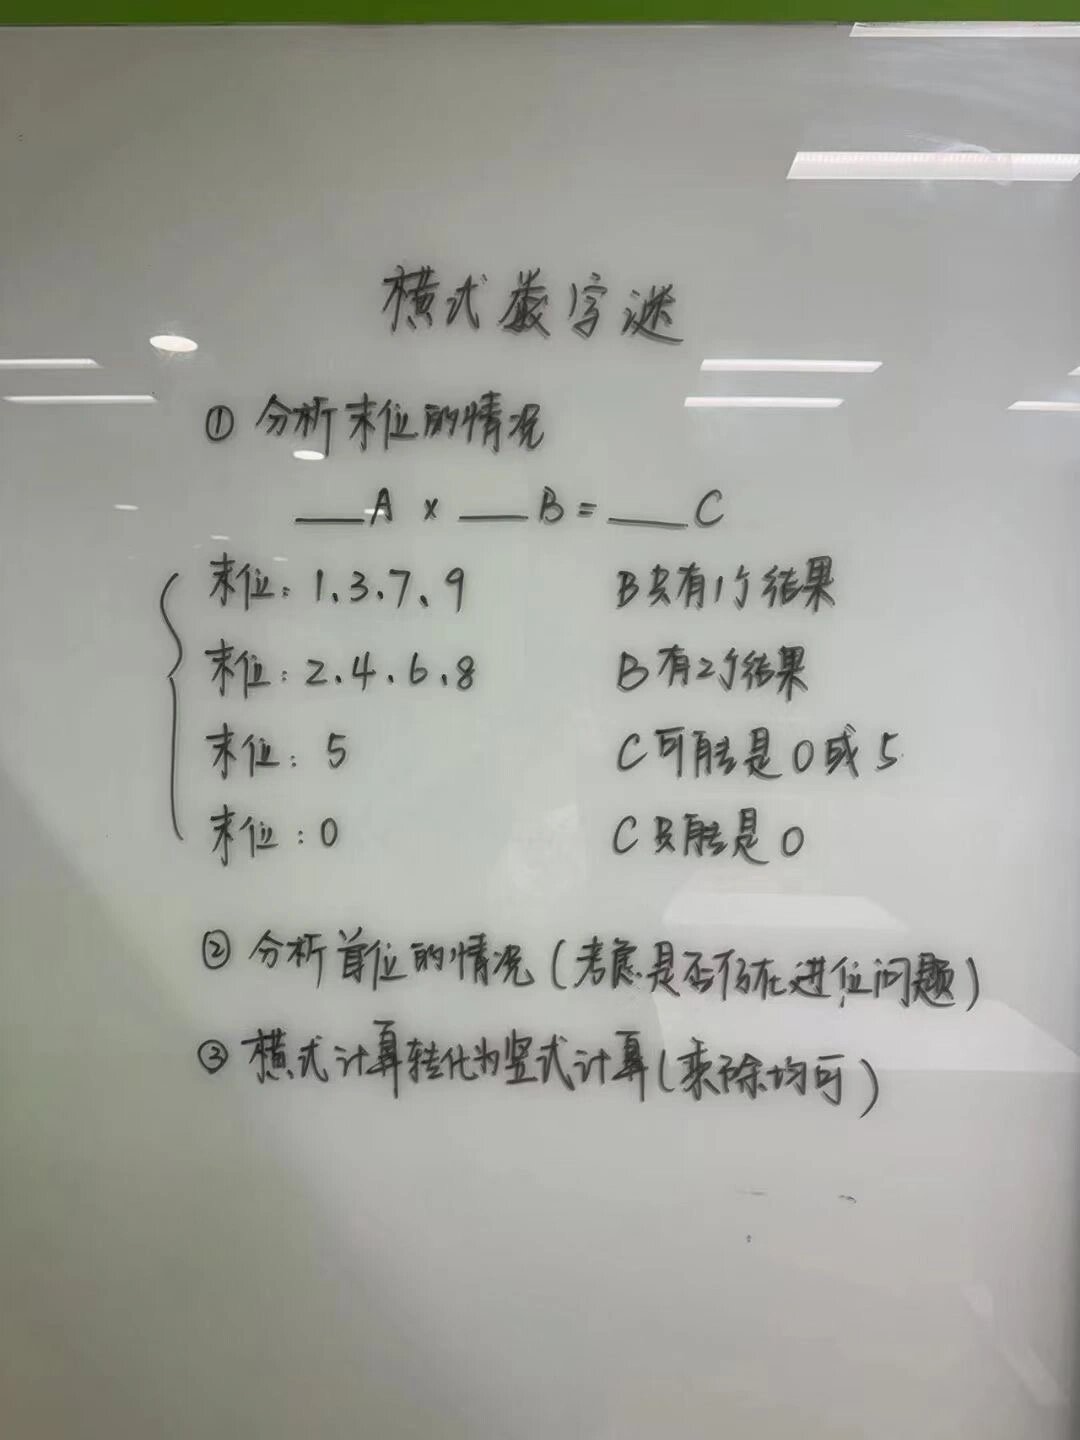 横式数字谜
① 分析末位的情况
___A × ___B = ___C
末位：1、3、7、9 B只有1个结果
末位：2、4、6、8 B有2个结果
末位：5 C可能是0或5
末位：0 C只能是0
② 分析首位的情况（考虑是否存在进位问题）
③ 横式计算转化为竖式计算（乘除均可）